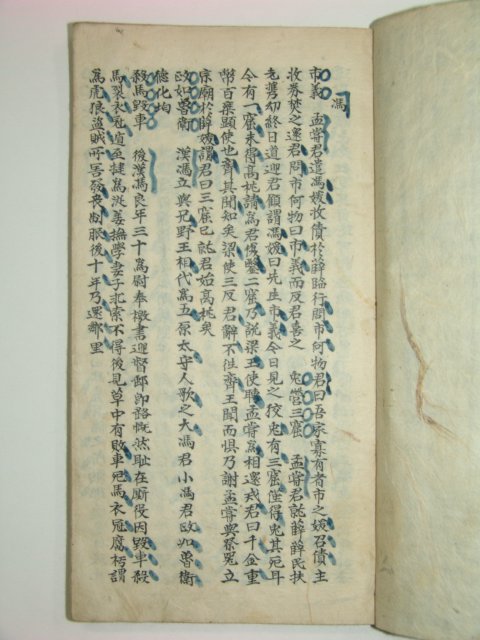 馮
市義　孟嘗君遣馮媛收債於薛臨行問市何物君曰吾家寡有者市之媛召債主
收券焚之還君問市何物曰市義而反君喜之　兎營三窟　孟嘗君就薛薛民扶
老携幼終日道迎君顧謂馮媛曰先生市義今日見之狡兎有三窟僅得兎其死耳
今有一窟未得高枕請爲君復鑿二窟乃說梁王使聘孟嘗爲相遣戎君曰千金重
幣百乘顯使也齊其聞知矣梁使三反君辭不往齊王聞而惧乃謝孟嘗與祭冕立
宗廟於薛媛謂君曰三窟已就君始高枕矣
政如魯衛　漢馮立與兄野王相代爲五原太守人歌之大馮君小馮君政如魯衛
德化均
殺馬毀車　後漢馮良年三十爲尉奉檄書迎督郵卽路慨然耻在厮役因毀車殺
馬裂衣冠遁至犍爲從姜撫學妻子求索不得後見草中有敗車死馬衣冠腐朽謂
爲虎狼盜賊所害發喪制服後十年乃還鄕里